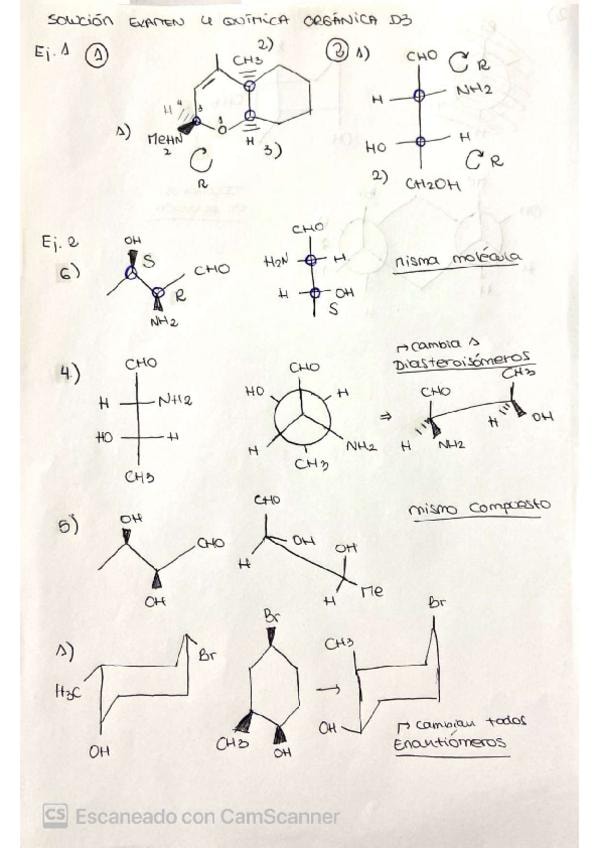 SOLUCIÓN EXAMEN 4 QUÍMICA ORGÁNICA D3
Ej. 1 1
2)
CH3
H 4
3
1)
MeHN
2
O
H
3)
R
2 1)
CHO R
H NH2
HO H
R
2) CH2OH
Ej. 2
6)
OH
S
CHO
R
NH2
CHO
H2N H
H OH
S
misma molécula
4)
CHO
H NH2
HO H
CH3
CHO
HO H
H NH2
CH3
⇒
cambia 1
Diasteroisómeros
CHO
CH3
H NH2
H OH
5)
OH
CHO
OH
CHO
OH
H
OH
H Me
mismo compuesto
1)
Br
H3C
OH
Br
CH3
OH
→
Br
CH3
OH
cambian todos
Enantiómeros
CS Escaneado con CamScanner